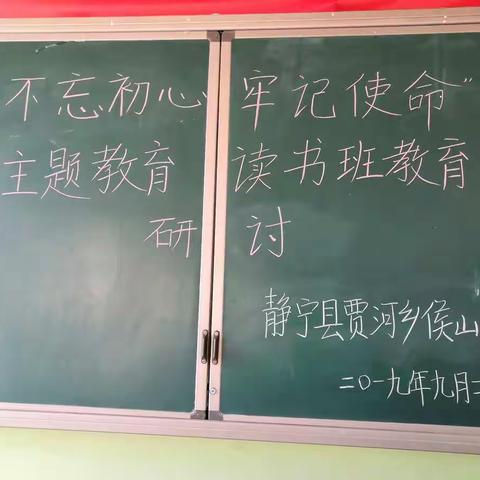 不忘初心 牢记使命”
主题教育 读书班教育
研讨
静宁县贾河乡侯山
二〇一九年九月二